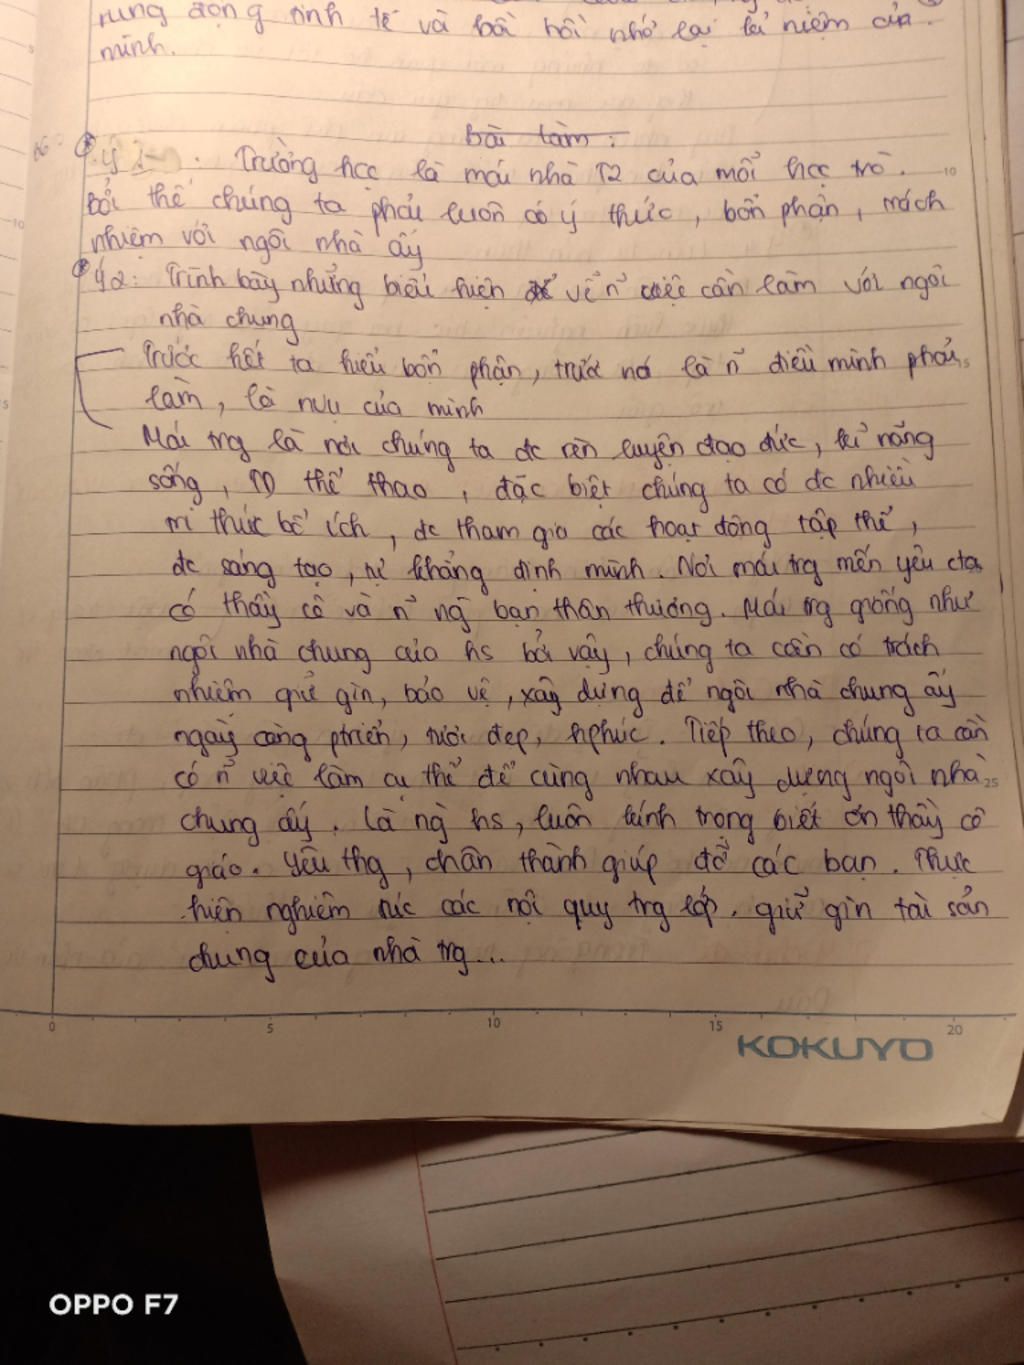 rung động tinh tế và bồi hồi nhớ lại kỉ niệm của
mình.
Bài làm:
ý 1 . Trường học là mái nhà T2 của mỗi học trò.
Bởi thế chúng ta phải luôn có ý thức, bổn phận, trách
nhiệm với ngôi nhà ấy
Ý2: Trình bày những biểu hiện về n~ việc cần làm với ngôi
nhà chung
Trước hết ta hiểu bổn phận, trước nó là n~ điều mình phải
làm, là nvụ của mình
Mái trg là nơi chúng ta đc rèn luyện đạo đức, kĩ năng
sống, TD thể thao, đặc biệt chúng ta có đc nhiều
tri thức bổ ích, đc tham gia các hoạt động tập thể,
đc sáng tạo, tự khẳng định mình. Nơi mái trg mến yêu cta
có thầy cô và n~ ng bạn thân thương. Mái trg giống như
ngôi nhà chung của hs bởi vậy, chúng ta cần có trách
nhiệm giữ gìn, bảo vệ, xây dựng để ngôi nhà chung ấy
ngày càng ptriển, tươi đẹp, hphúc. Tiếp theo, chúng ta cần
có n~ việc làm cụ thể để cùng nhau xây dựng ngôi nhà
chung ấy. Là ng hs, luôn kính trọng biết ơn thầy cô
giáo. Yêu thg, chân thành giúp đỡ các bạn. Thực
hiện nghiêm túc các nội quy trg lớp. giữ gìn tài sản
chung của nhà trg...
0 5 10 15 20
KOKUYO
OPPO F7